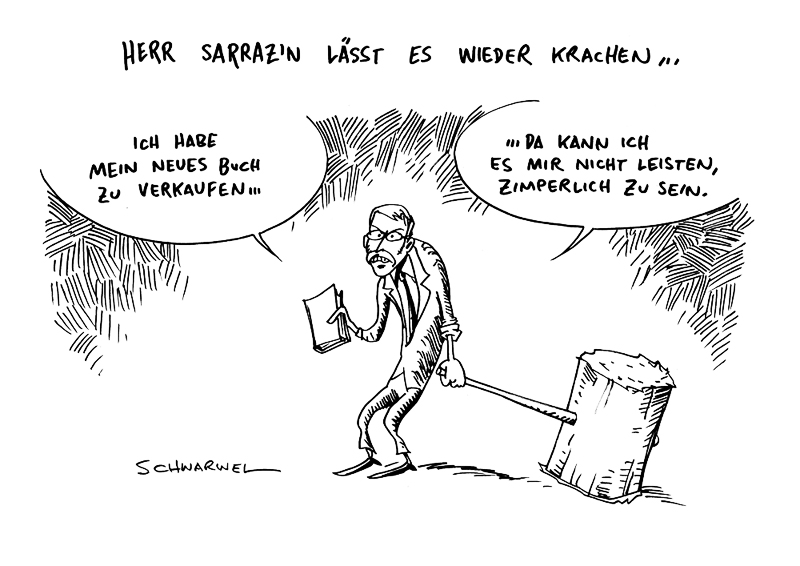 HERR SARRAZIN LÄSST ES WIEDER KRACHEN...
ICH HABE
MEIN NEUES BUCH
ZU VERKAUFEN...
...DA KANN ICH
ES MIR NICHT LEISTEN,
ZIMPERLICH ZU SEIN.
SCHWARWEL